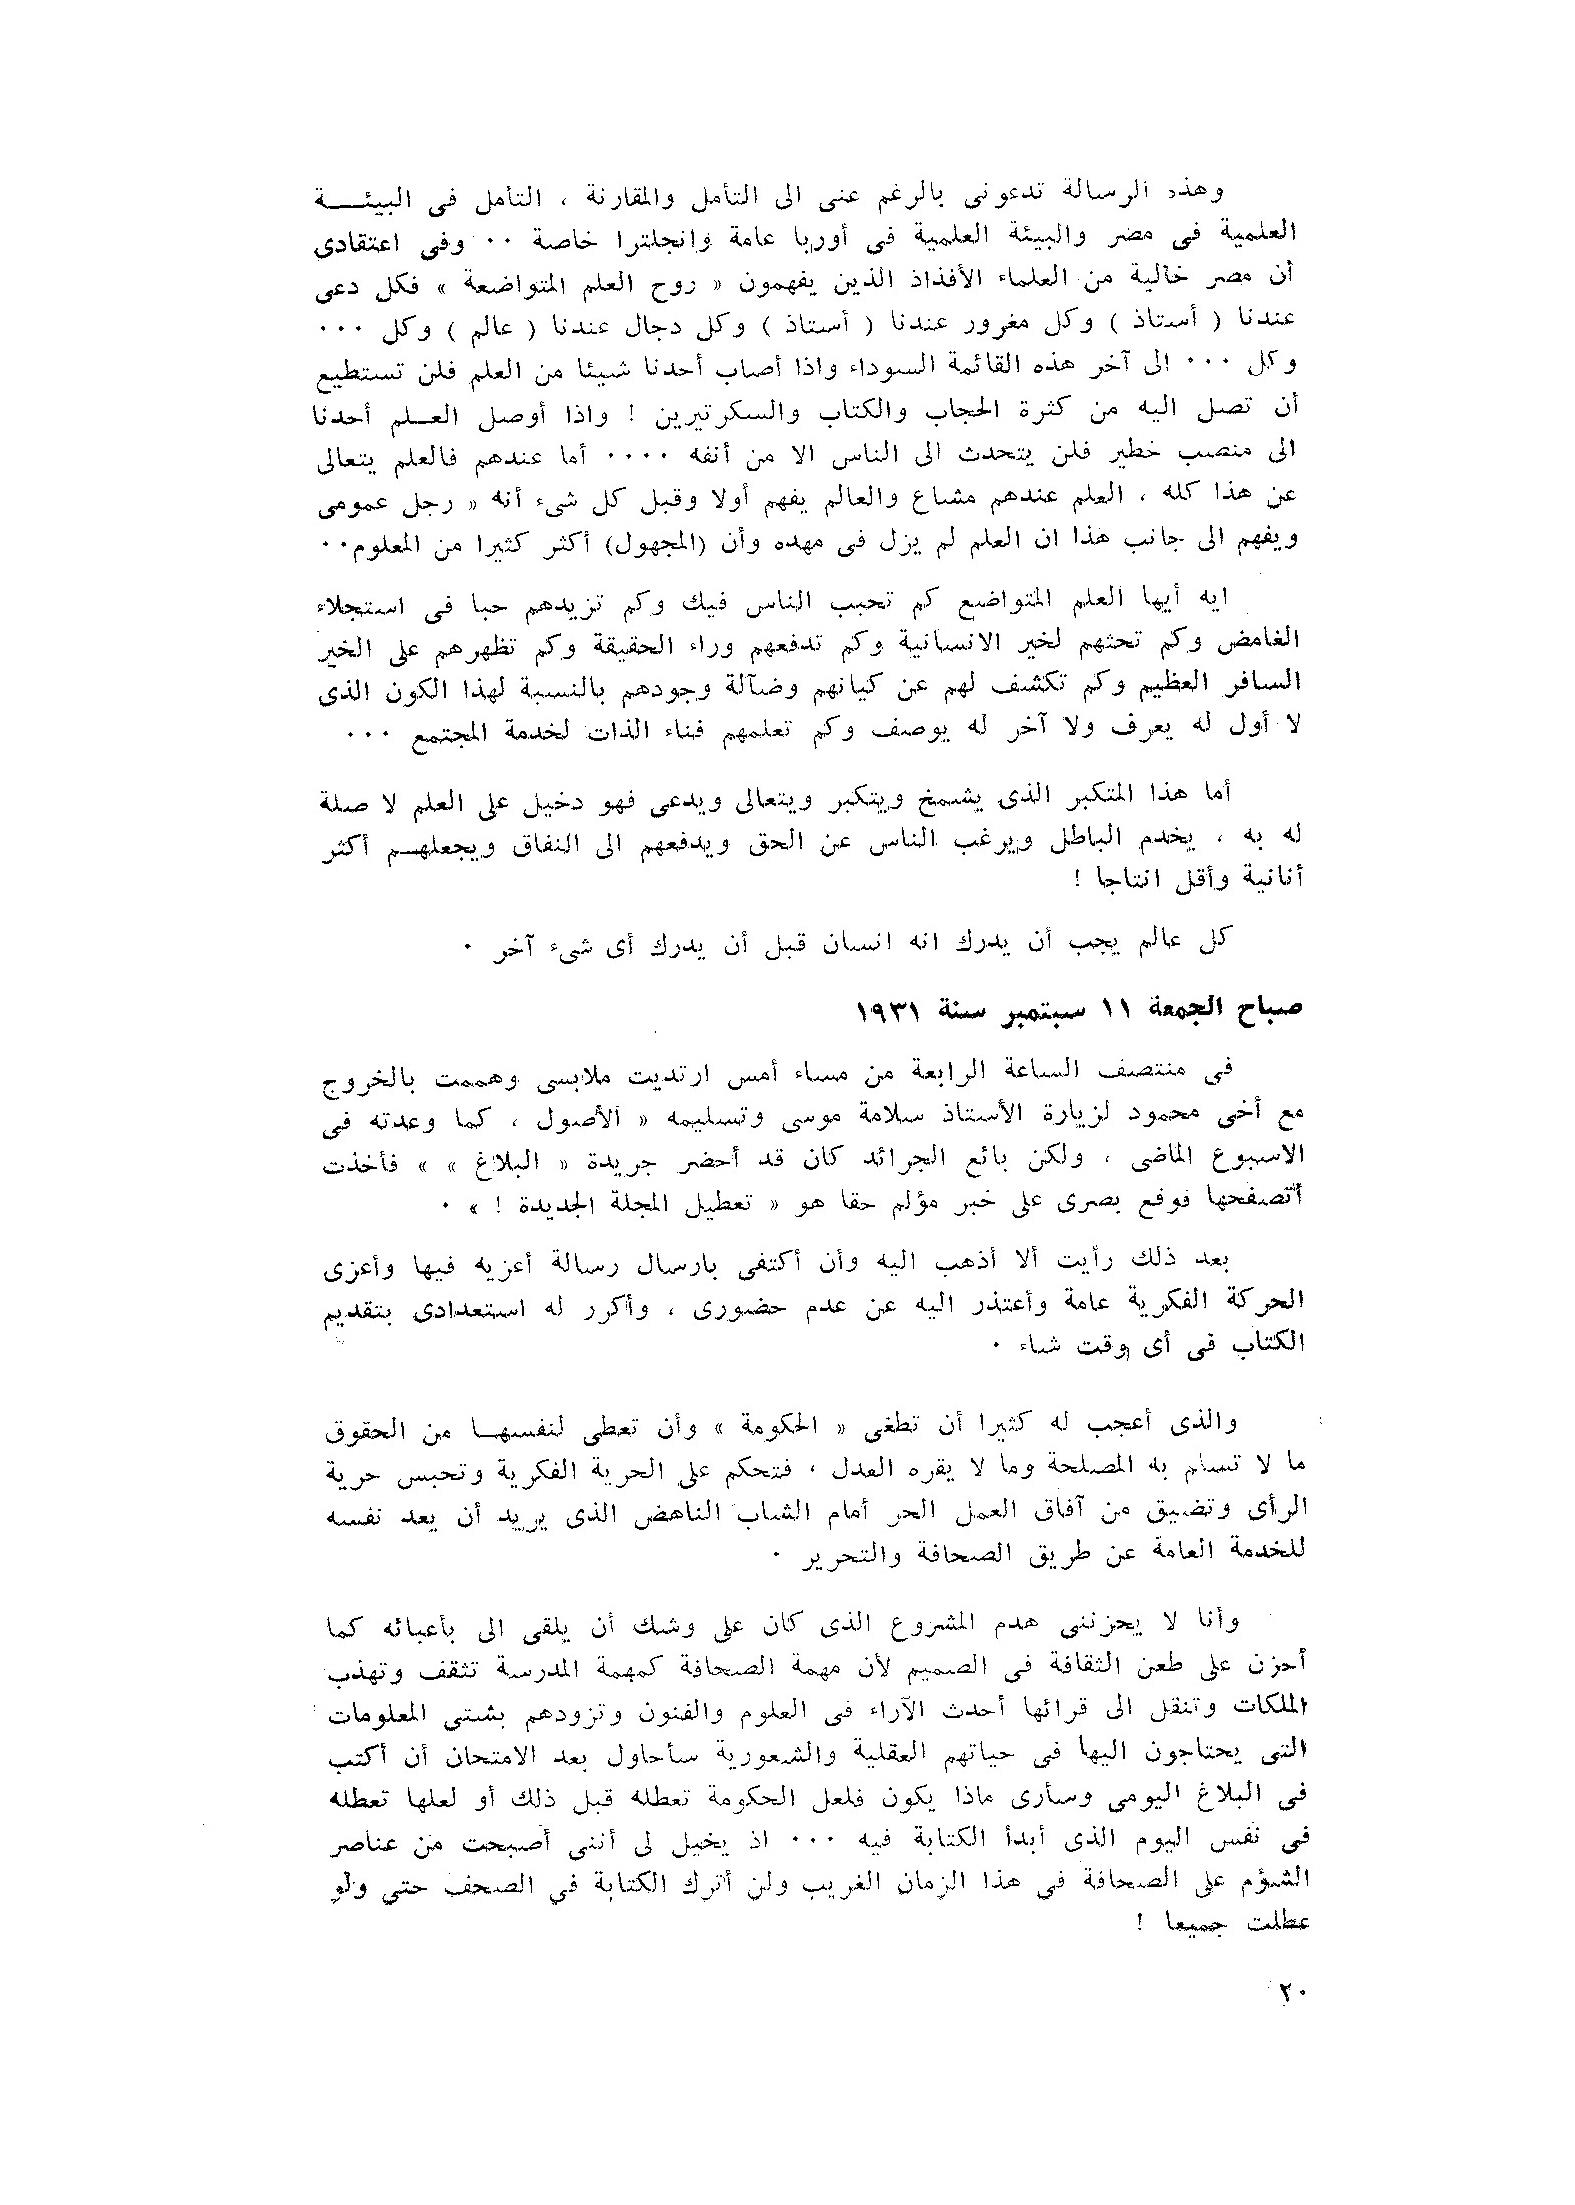 وهذه الرسالة تدعونى بالرغم عنى الى التأمل والمقارنة ، التأمل فى البيئــــة
العلمية فى مصر والبيئة العلمية فى أوربا عامة وانجلترا خاصة ٠٠ وفى اعتقادى
أن مصر خالية من العلماء الأفذاذ الذين يفهمون « روح العلم المتواضعة » فكل دعى
عندنا ( أستاذ ) وكل مغرور عندنا ( أستاذ ) وكل دجال عندنا ( عالم ) وكل ٠٠٠
وكل ٠٠٠ الى آخر هذه القائمة السوداء واذا أصاب أحدنا شيئا من العلم فلن تستطيع
أن تصل اليه من كثرة الحجاب والكتاب والسكرتيرين ! واذا أوصل العــلم أحدنا
الى منصب خطير فلن يتحدث الى الناس الا من أنفه ٠٠٠٠ أما عندهم فالعلم يتعالى
عن هذا كله ، العلم عندهم مشاع والعالم يفهم أولا وقبل كل شىء أنه « رجل عمومى
ويفهم الى جانب هذا ان العلم لم يزل فى مهده وأن (المجهول) أكثر كثيرا من المعلوم٠٠
ايه أيها العلم المتواضع كم تحبب الناس فيك وكم تزيدهم حبا فى استجلاء
الغامض وكم تحثهم لخير الانسانية وكم تدفعهم وراء الحقيقة وكم تظهرهم على الخير
السافر العظيم وكم تكشف لهم عن كيانهم وضآلة وجودهم بالنسبة لهذا الكون الذى
لا أول له يعرف ولا آخر له يوصف وكم تعلمهم فناء الذات لخدمة المجتمع ٠٠٠
أما هذا المتكبر الذى يشمخ ويتكبر ويتعالى ويدعى فهو دخيل على العلم لا صلة
له به ، يخدم الباطل ويرغب الناس عن الحق ويدفعهم الى النفاق ويجعلهــم أكثر
أنانية وأقل انتاجا !
كل عالم يجب أن يدرك انه انسان قبل أن يدرك أى شىء آخر ٠
صباح الجمعة ١١ سبتمبر سنة ١٩٣١
فى منتصف الساعة الرابعة من مساء أمس ارتديت ملابسى وهممت بالخروج
مع أخى محمود لزيارة الأستاذ سلامة موسى وتسليمه « الأصول ، كما وعدته فى
الاسبوع الماضى ، ولكن بائع الجرائد كان قد أحضر جريدة « البلاغ » » فأخذت
أتصفحها فوقع بصرى على خبر مؤلم حقا هو « تعطيل المجلة الجديدة ! » ٠
بعد ذلك رأيت ألا أذهب اليه وأن أكتفى بارسال رسالة أعزيه فيها وأعزى
الحركة الفكرية عامة وأعتذر اليه عن عدم حضورى ، وأكرر له استعدادى بتقديم
الكتاب فى أى وقت شاء ٠
والذى أعجب له كثيرا أن تطغى « الحكومة » وأن تعطى لنفسهــا من الحقوق
ما لا تسلم به المصلحة وما لا يقره العدل ، فتحكم على الحرية الفكرية وتحبس حرية
الرأى وتضيق من آفاق العمل الحر أمام الشاب الناهض الذى يريد أن يعد نفسه
للخدمة العامة عن طريق الصحافة والتحرير ٠
وأنا لا يحزننى هدم المشروع الذى كان على وشك أن يلقى الى بأعبائه كما
أحزن على طعن الثقافة فى الصميم لأن مهمة الصحافة كمهمة المدرسة تثقف وتهذب
الملكات وتنقل الى قرائها أحدث الآراء فى العلوم والفنون وتزودهم بشتى المعلومات
التى يحتاجون اليها فى حياتهم العقلية والشعورية سأحاول بعد الامتحان أن أكتب
فى البلاغ اليومى وسأرى ماذا يكون فلعل الحكومة تعطله قبل ذلك أو لعلها تعطله
فى نفس اليوم الذى أبدأ الكتابة فيه ٠٠٠ اذ يخيل لى أننى أصبحت من عناصر
الشؤم على الصحافة فى هذا الزمان الغريب ولن أترك الكتابة في الصحف حتى ولو
عطلت جميعا !
٢٠